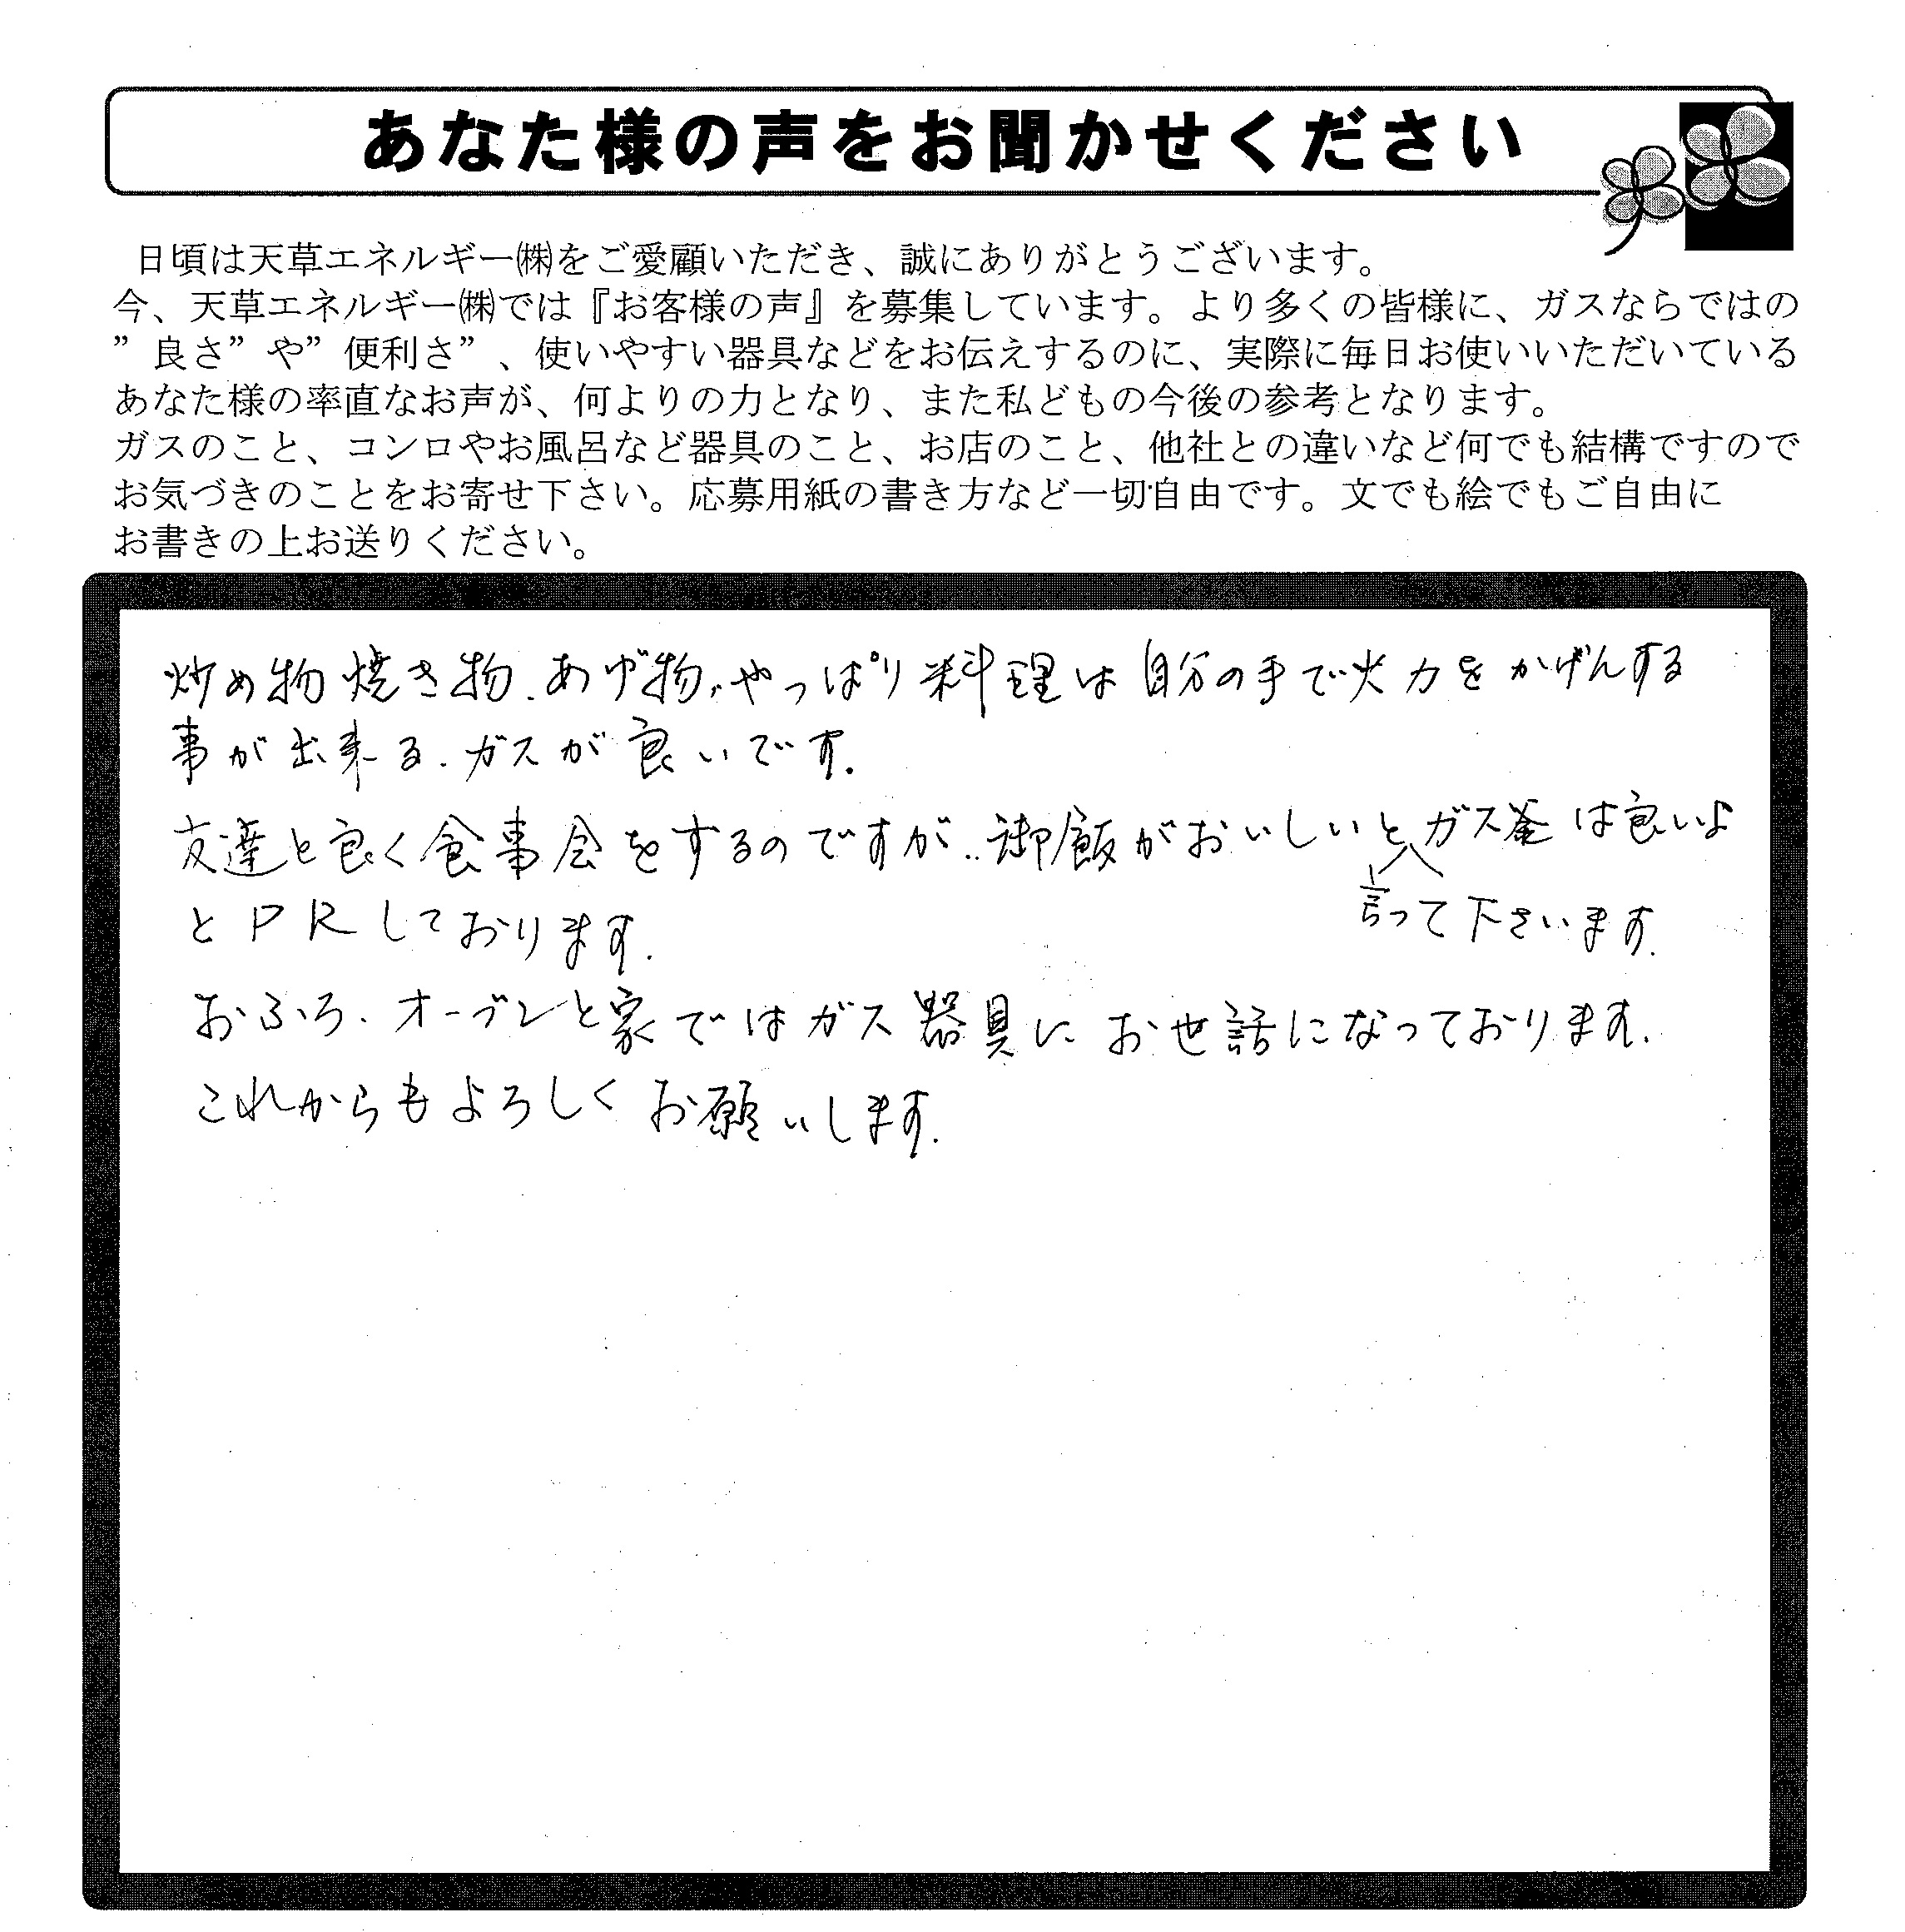 あなた様の声をお聞かせください
日頃は天草エネルギー㈱をご愛顧いただき、誠にありがとうございます。
今、天草エネルギー㈱では『お客様の声』を募集しています。より多くの皆様に、ガスならではの
”良さ”や”便利さ”、使いやすい器具などをお伝えするのに、実際に毎日お使いいただいている
あなた様の率直なお声が、何よりの力となり、また私どもの今後の参考となります。
ガスのこと、コンロやお風呂など器具のこと、お店のこと、他社との違いなど何でも結構ですので
お気づきのことをお寄せ下さい。応募用紙の書き方など一切自由です。文でも絵でもご自由に
お書きの上お送りください。
炒め物焼き物、あげ物、やっぱり料理は自分の手で火力をかげんする
事が出来る、ガスが良いです。
友達と良く食事会をするのですが、御飯がおいしいとガス釜は良いよ
言って下さいます。
とPRしております。
おふろ、オーブンと家ではガス器具にお世話になっております。
これからもよろしくお願いします。